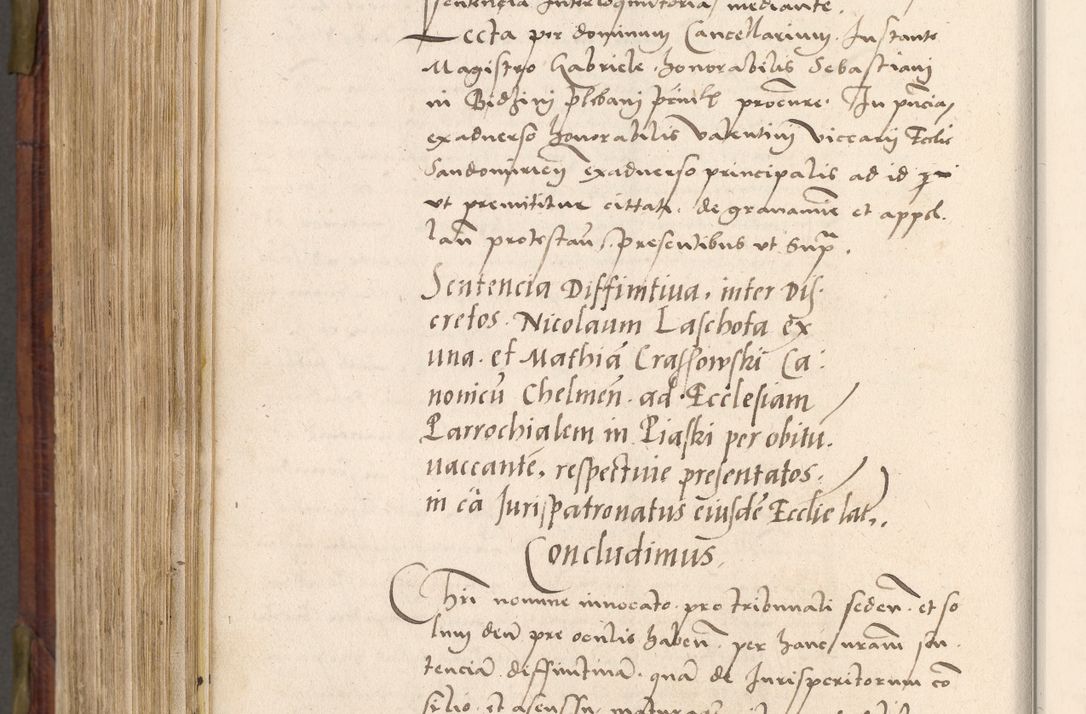 sentencia Interloqutoria mediante.
Lecta per dominum Cancellarium. Instante
Magistro Gabriele honorabilis Sebastiani
in Bidzini plebani prcure. In pncia
exaduerso honorabilis Valentini Viccarii Ecclie
Sandomirien exaduerso principalis ad id
vt premittitur cittati. de grauamine et appel.
lan protestan presentibus vt Supra.
Sentencia Diffinitiua, inter Dis
cretos. Nicolaum Laschota ex
una. et Mathia Crassowski Ca:
nonicu Chelmen. ad. Ecclesiam
Parrochialem in Piaski per obitu.
uaccante, respectiue presentatos.
in ca Jurispatronatus eiusde Ecclie lat.
Concludimus.
Chri nomine inuocato. pro tribunali seden. et so
lum deu pre oculis haben. per hanc nram sen
tencia diffinitiua. qua de Jurisperitorum co
silio et asensu